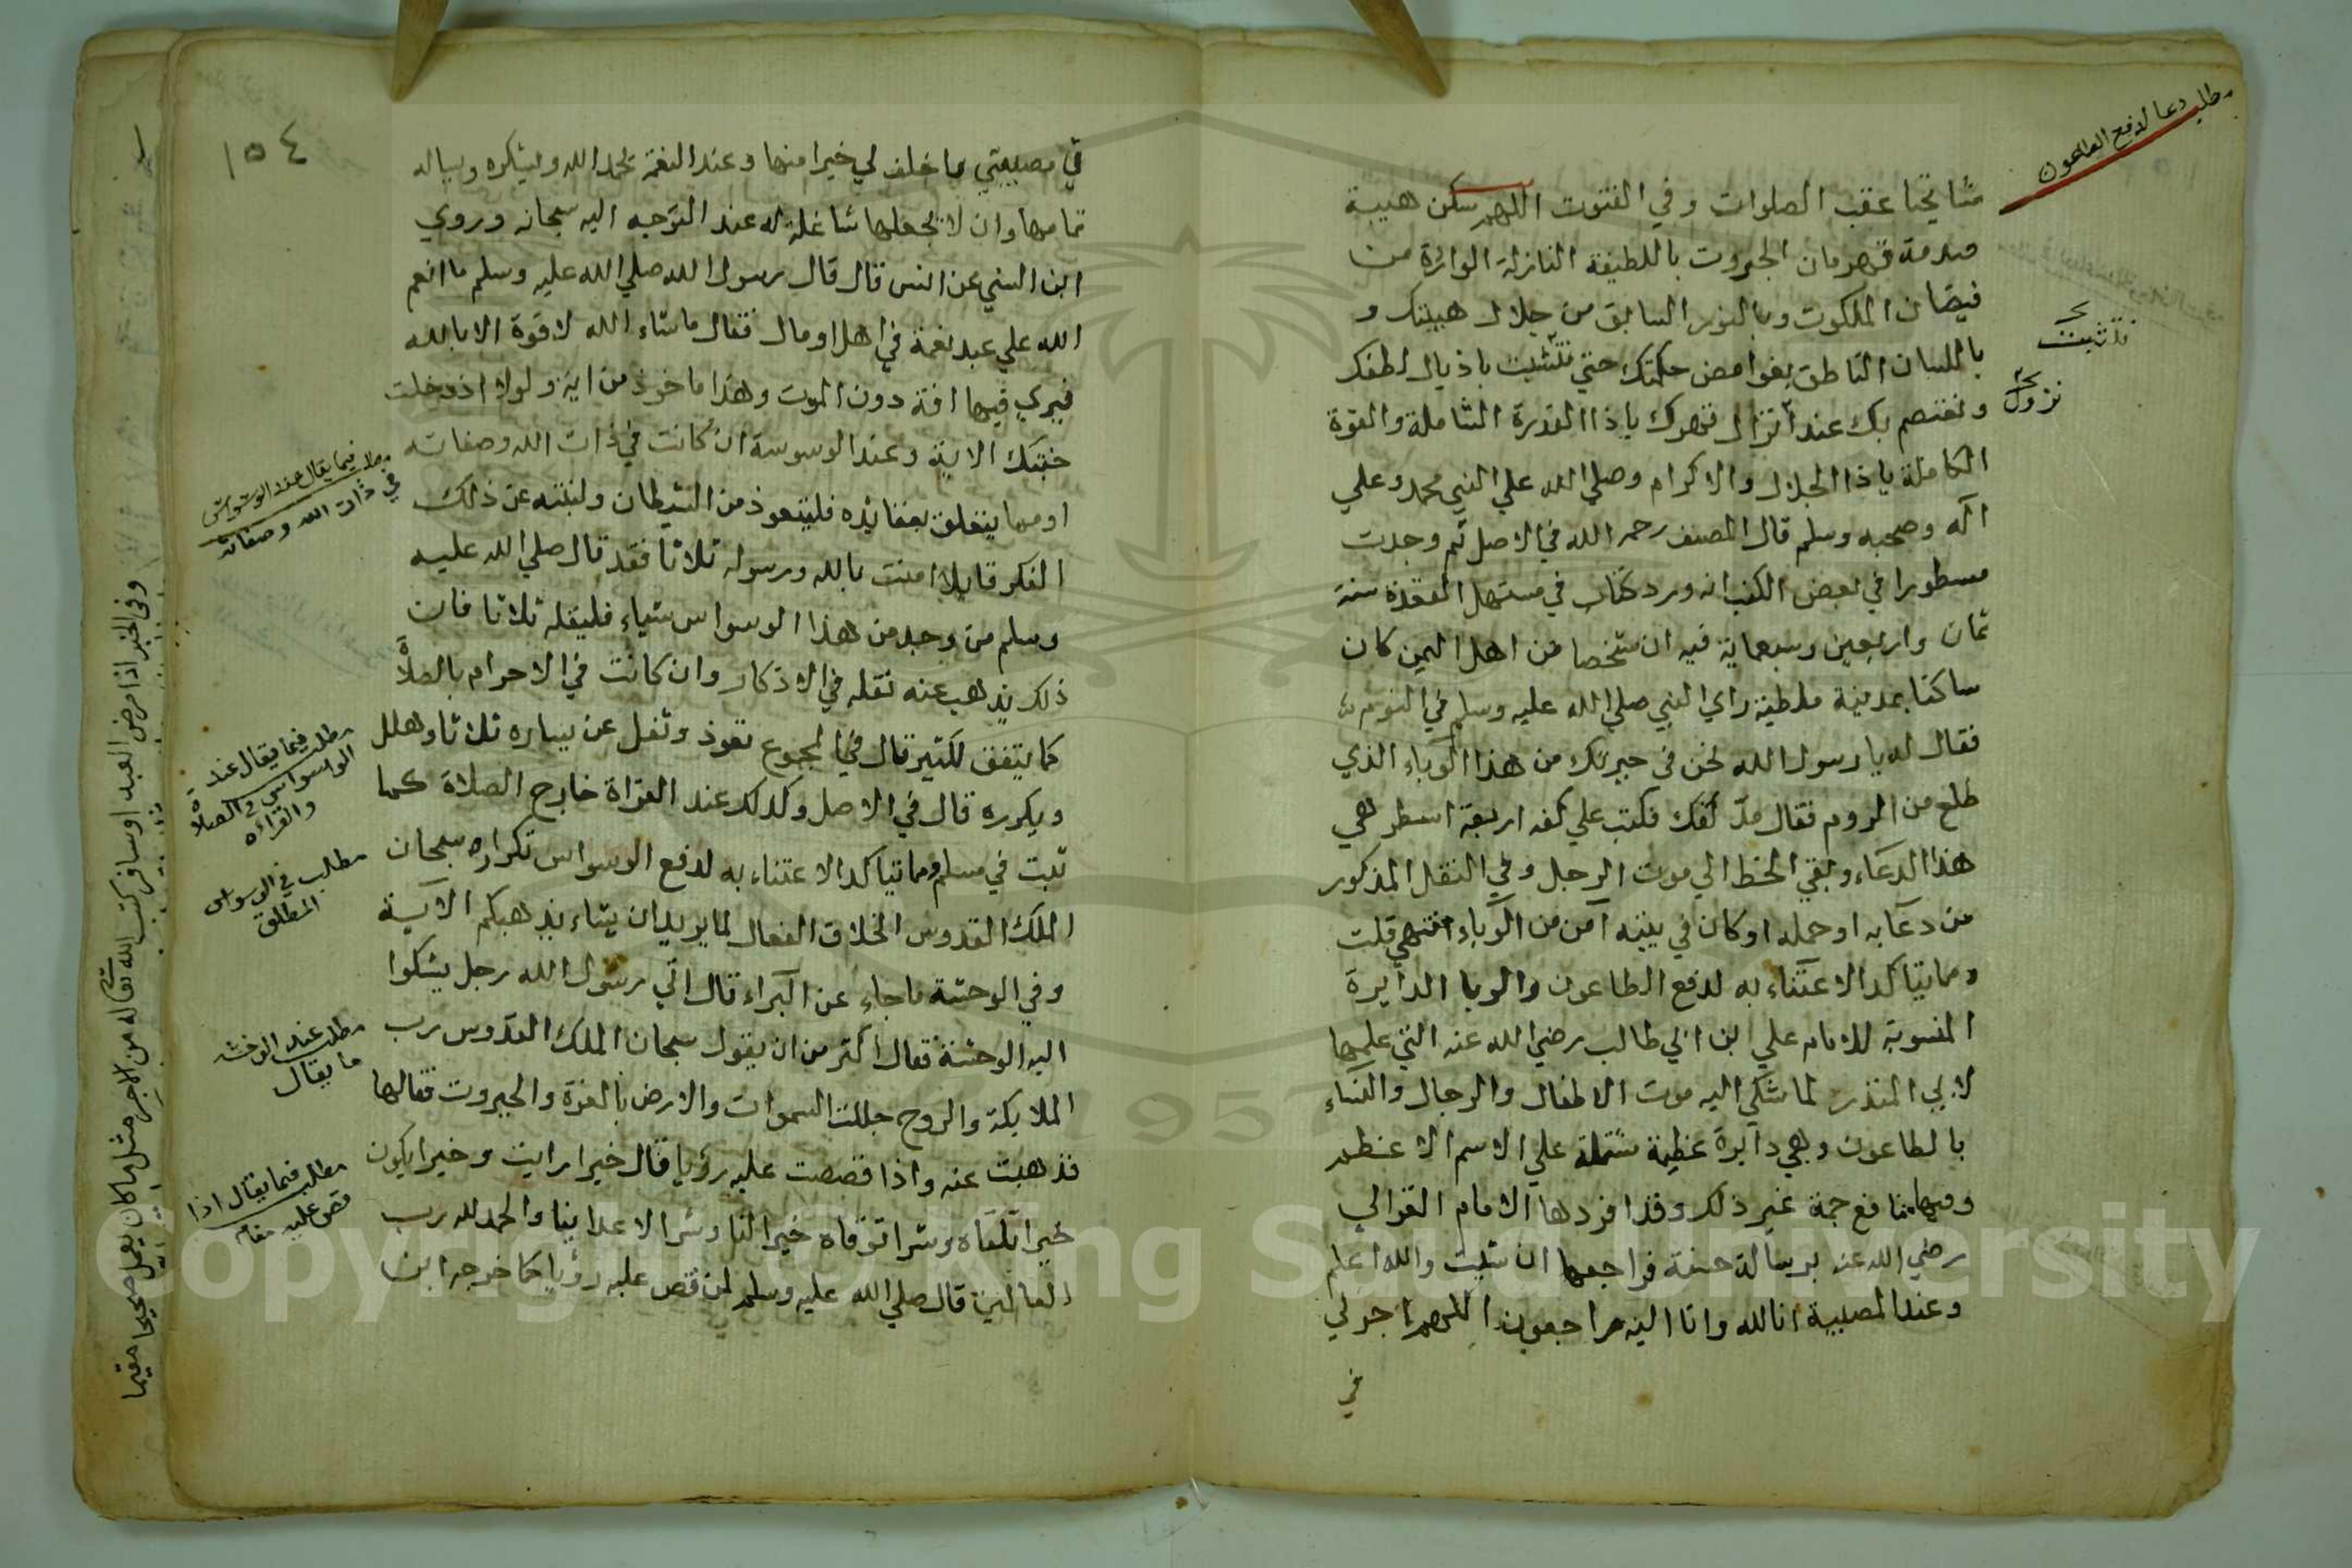 مطلب دعا لدفع الطاعون
مشايخنا عقب الصلوات وفي القنوت اللهم سكن هيبة
صدمة قهرمان الجبروت باللطيفة النازلة الواردة من
فيضان الملكوت وبالنور السابق من جلال هيبتك و
باللسان الناطق بغوامض حكمتك حتي نتشبث باذيال لطفك
ونعتصم بك عند انزال قهرك ياذا القدرة الشاملة والقوة
نزول
الكاملة ياذا الجلال والاكرام وصلي الله علي النبي محمد وعلي
آله وصحبه وسلم قال المصنف رحمه الله في الاصل ثم وجدت
مسطورا في بعض الكتب انه ورد كتاب في مستهل القعدة سنة
ثمان واربعين وسبعماية فيه ان شخصا من اهل اليمن كان
ساكنا بمدينة ملطية راي النبي صلي الله عليه وسلم في النوم
فقال له يا رسول الله نحن في جيرتك من هذا الوباء الذي
طلع من الروم فقال مد كفك فكتب علي كفه اربعة اسطر هي
هذا الدعاء وبقي الخط الي موت الرجل وفي النقل المذكور
من دعا به او حمله او كان في بيته آمن من الوباء انتهي قلت
ومما يتاكد الاعتناء به لدفع الطاعون والوبا الدايرة
المنسوبة للامام علي ابن ابي طالب رضي الله عنه التي علمها
لابي المنذر لما شكي اليه موت الاطفال والرجال والنساء
بالطاعون وهي دايرة عظيمة مشتملة علي الاسم الاعظم
وفيها منافع جمة غير ذلك وقد افردها الامام الغزالي
رضي الله عنه برسالة حسنة فراجعها ان شيت والله اعلم
وعند المصيبة انا لله وانا اليه راجعون اللهم اجرلي
في
١٥٤
في مصيبتي واخلف لي خيرا منها وعند النعمة يحمد الله ويشكره ويساله
تمامها وان لا يجعلها شاغلة له عند التوجه اليه سبحانه وروي
ابن السني عن انس قال قال رسول الله صلي الله عليه وسلم ما انعم
الله علي عبد نعمة في اهل او مال فقال ماشاء الله لا قوة الا بالله
فيري فيها افة دون الموت وهذا ماخوذ من اية ولولا اذ دخلت
جنتك الاية وعند الوسوسة ان كانت في ذات الله وصفاته
او مما يتعلق بعقائده فليتعوذ من الشيطان ولينته عن ذلك
الفكر قايلا امنت بالله ورسوله ثلاثا فقد قال صلي الله عليه
وسلم من وجد من هذا الوسواس شياء فليقله ثلاثا فان
ذلك يذهب عنه نقله في الاذكار وان كانت في الاحرام بالصلاة
كما يتفق لكثير قال في المجموع تعوذ وتفل عن يساره ثلاثا وهلل
ويكرره قال في الاصل وكذلك عند القراة خارج الصلاة كما
ثبت في مسلم ومما يتاكد الاعتناء به لدفع الوسواس تكراره سبحان
الملك القدوس الخلاق الفعال لما يريد ان يشاء يذهبكم الآية
وفي الوحشة ماجاء عن البراء قال اتي رسول الله رجل يشكوا
اليه الوحشة فقال اكثر من ان يقول سبحان الملك القدوس رب
الملايكة والروح جللت السموات والارض بالعزة والجبروت فقالها
فذهبت عنه واذا قصصت عليه رؤيا قال خيرا رايت وخيرا يكون
خيرا تلقاه وشرا توقاه خيرا لنا وشرا لاعداينا والحمد لله رب
العالمين قال صلي الله عليه وسلم لمن قص عليه رؤيا كما خرجه ابن
فيما يقال عند الوسواس
في ذات الله وصفاته
مطلب فيما يقال عند
الوسواس في الصلاة
والقراءه
مطلب في الوسواس
المطلق
مطلب عند الوحشه
ما يقال
مطلب فيما يقال اذا
قص عليه منام
وفي الخبر اذا مرض العبد او سافر كتب الله تعالى له من الاجر مثل ما كان يعمل صحيحا مقيما
Copyright © King Saud University
1957